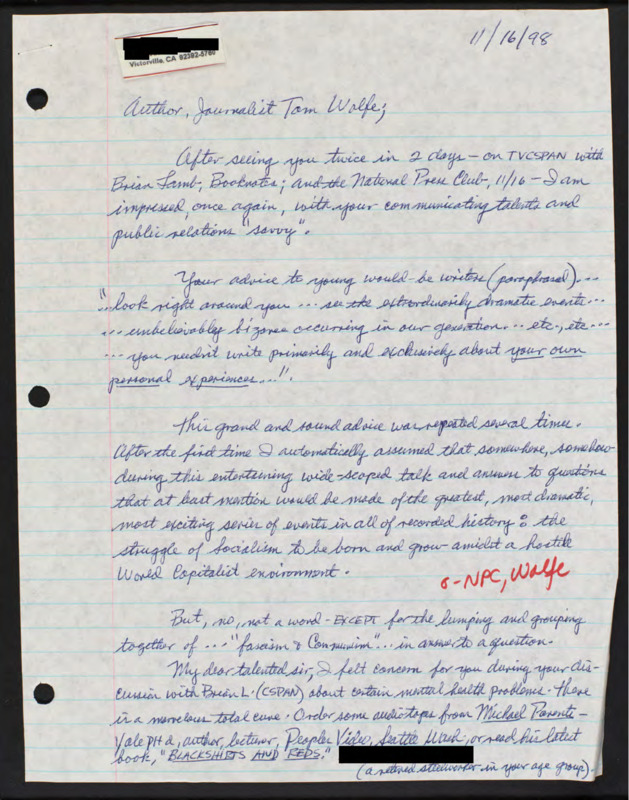 Victorville, CA 92392-5760
11/16/98
Author, Journalist Tom Wolfe;
After seeing you twice in 2 days - on TVCSPAN with
Brian Lamb, Booknotes; and the National Press Club, 11/16 - I am
impressed, once again, with your communicating talents and
public relations "savvy".
Your advice to young would-be writers (paraphrased)...
"...look right around you ... see the extraordinarily dramatic events...
... unbelievably bizarre occurring in our generation ... etc., etc...
... you needn't write primarily and exclusively about your own
personal experiences...".
This grand and sound advice was repeated several times.
After the first time I automatically assumed that somewhere, somehow
during this entertaining wide-scoped talk and answers to questions
that at least mention would be made of the greatest, most dramatic,
most exciting series of events in all of recorded history: the
struggle of Socialism to be born and grow amidst a hostile
World Capitalist environment.
-NPC, Wolfe
But, no, not a word - EXCEPT for the lumping and grouping
together of ... "fascism & Communism"... in answer to a question.
My dear talented sir, I felt concern for you during your dis-
cussion with Brian L. (CSPAN) about certain mental health problems. There
is a marvelous total cure. Order some audiotapes from Michael Parenti -
Yale PH d, author, lecturer, Peoples Video, Seattle Wash; or read his latest
book, "BLACKSHIRTS AND REDS."
(a retired steelworker in your age group).